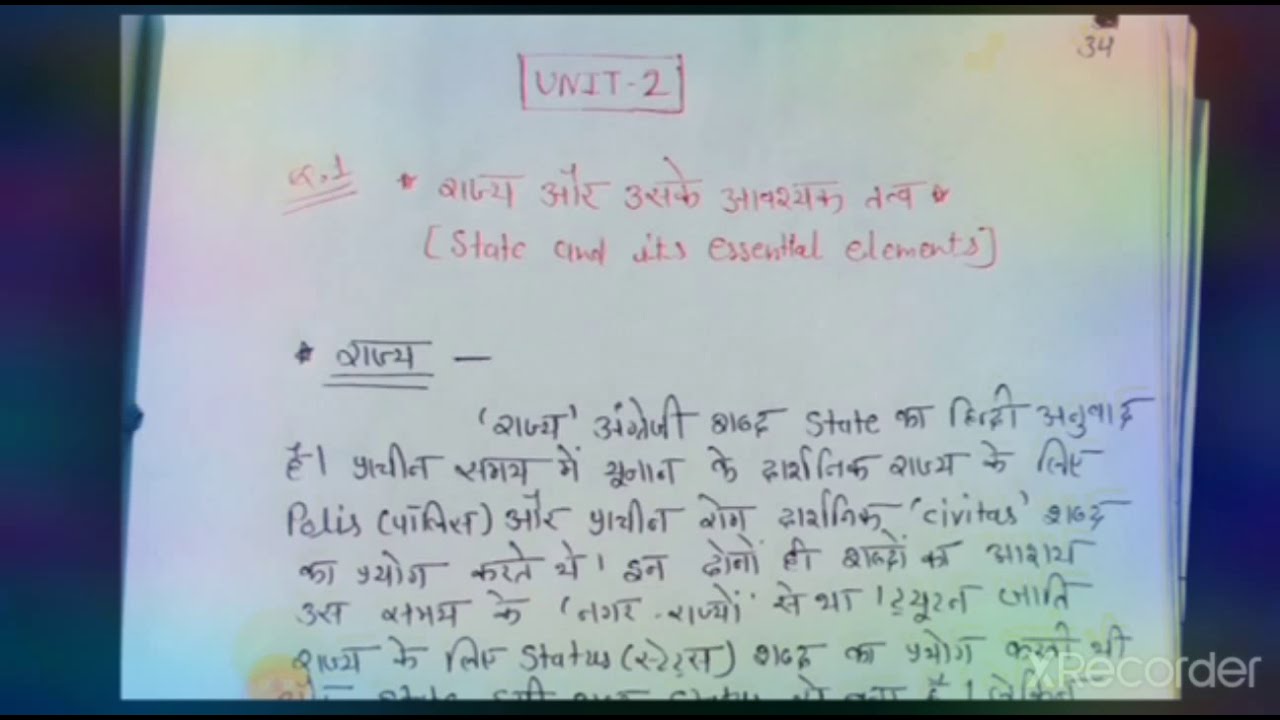 34
UNIT-2
Q.1 * राज्य और उसके आवश्यक तत्व *
[State and its essential elements]
* राज्य —
'राज्य' अंग्रेजी शब्द State का हिन्दी अनुवाद
है। प्राचीन समय में यूनान के दार्शनिक राज्य के लिए
Polis (पॉलिस) और प्राचीन रोम दार्शनिक 'civitas' शब्द
का प्रयोग करते थे। इन दोनों ही शब्दों का आशय
उस समय के 'नगर-राज्यों' से था। ट्यूटन जाति
राज्य के लिए Status (स्टेट्स) शब्द का प्रयोग करती थी
State इसी शब्द Status से बना है। लेकिन
XRecorder